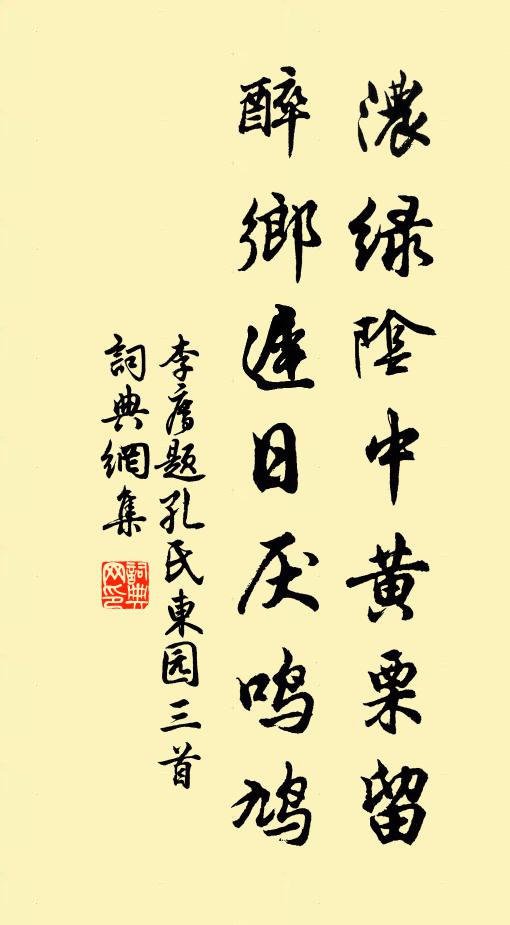 濃绿陰中黄栗留
醉鄉遲日厌鳴鳩
李廌題孔氏東园三首
詞典網集
詞典網印